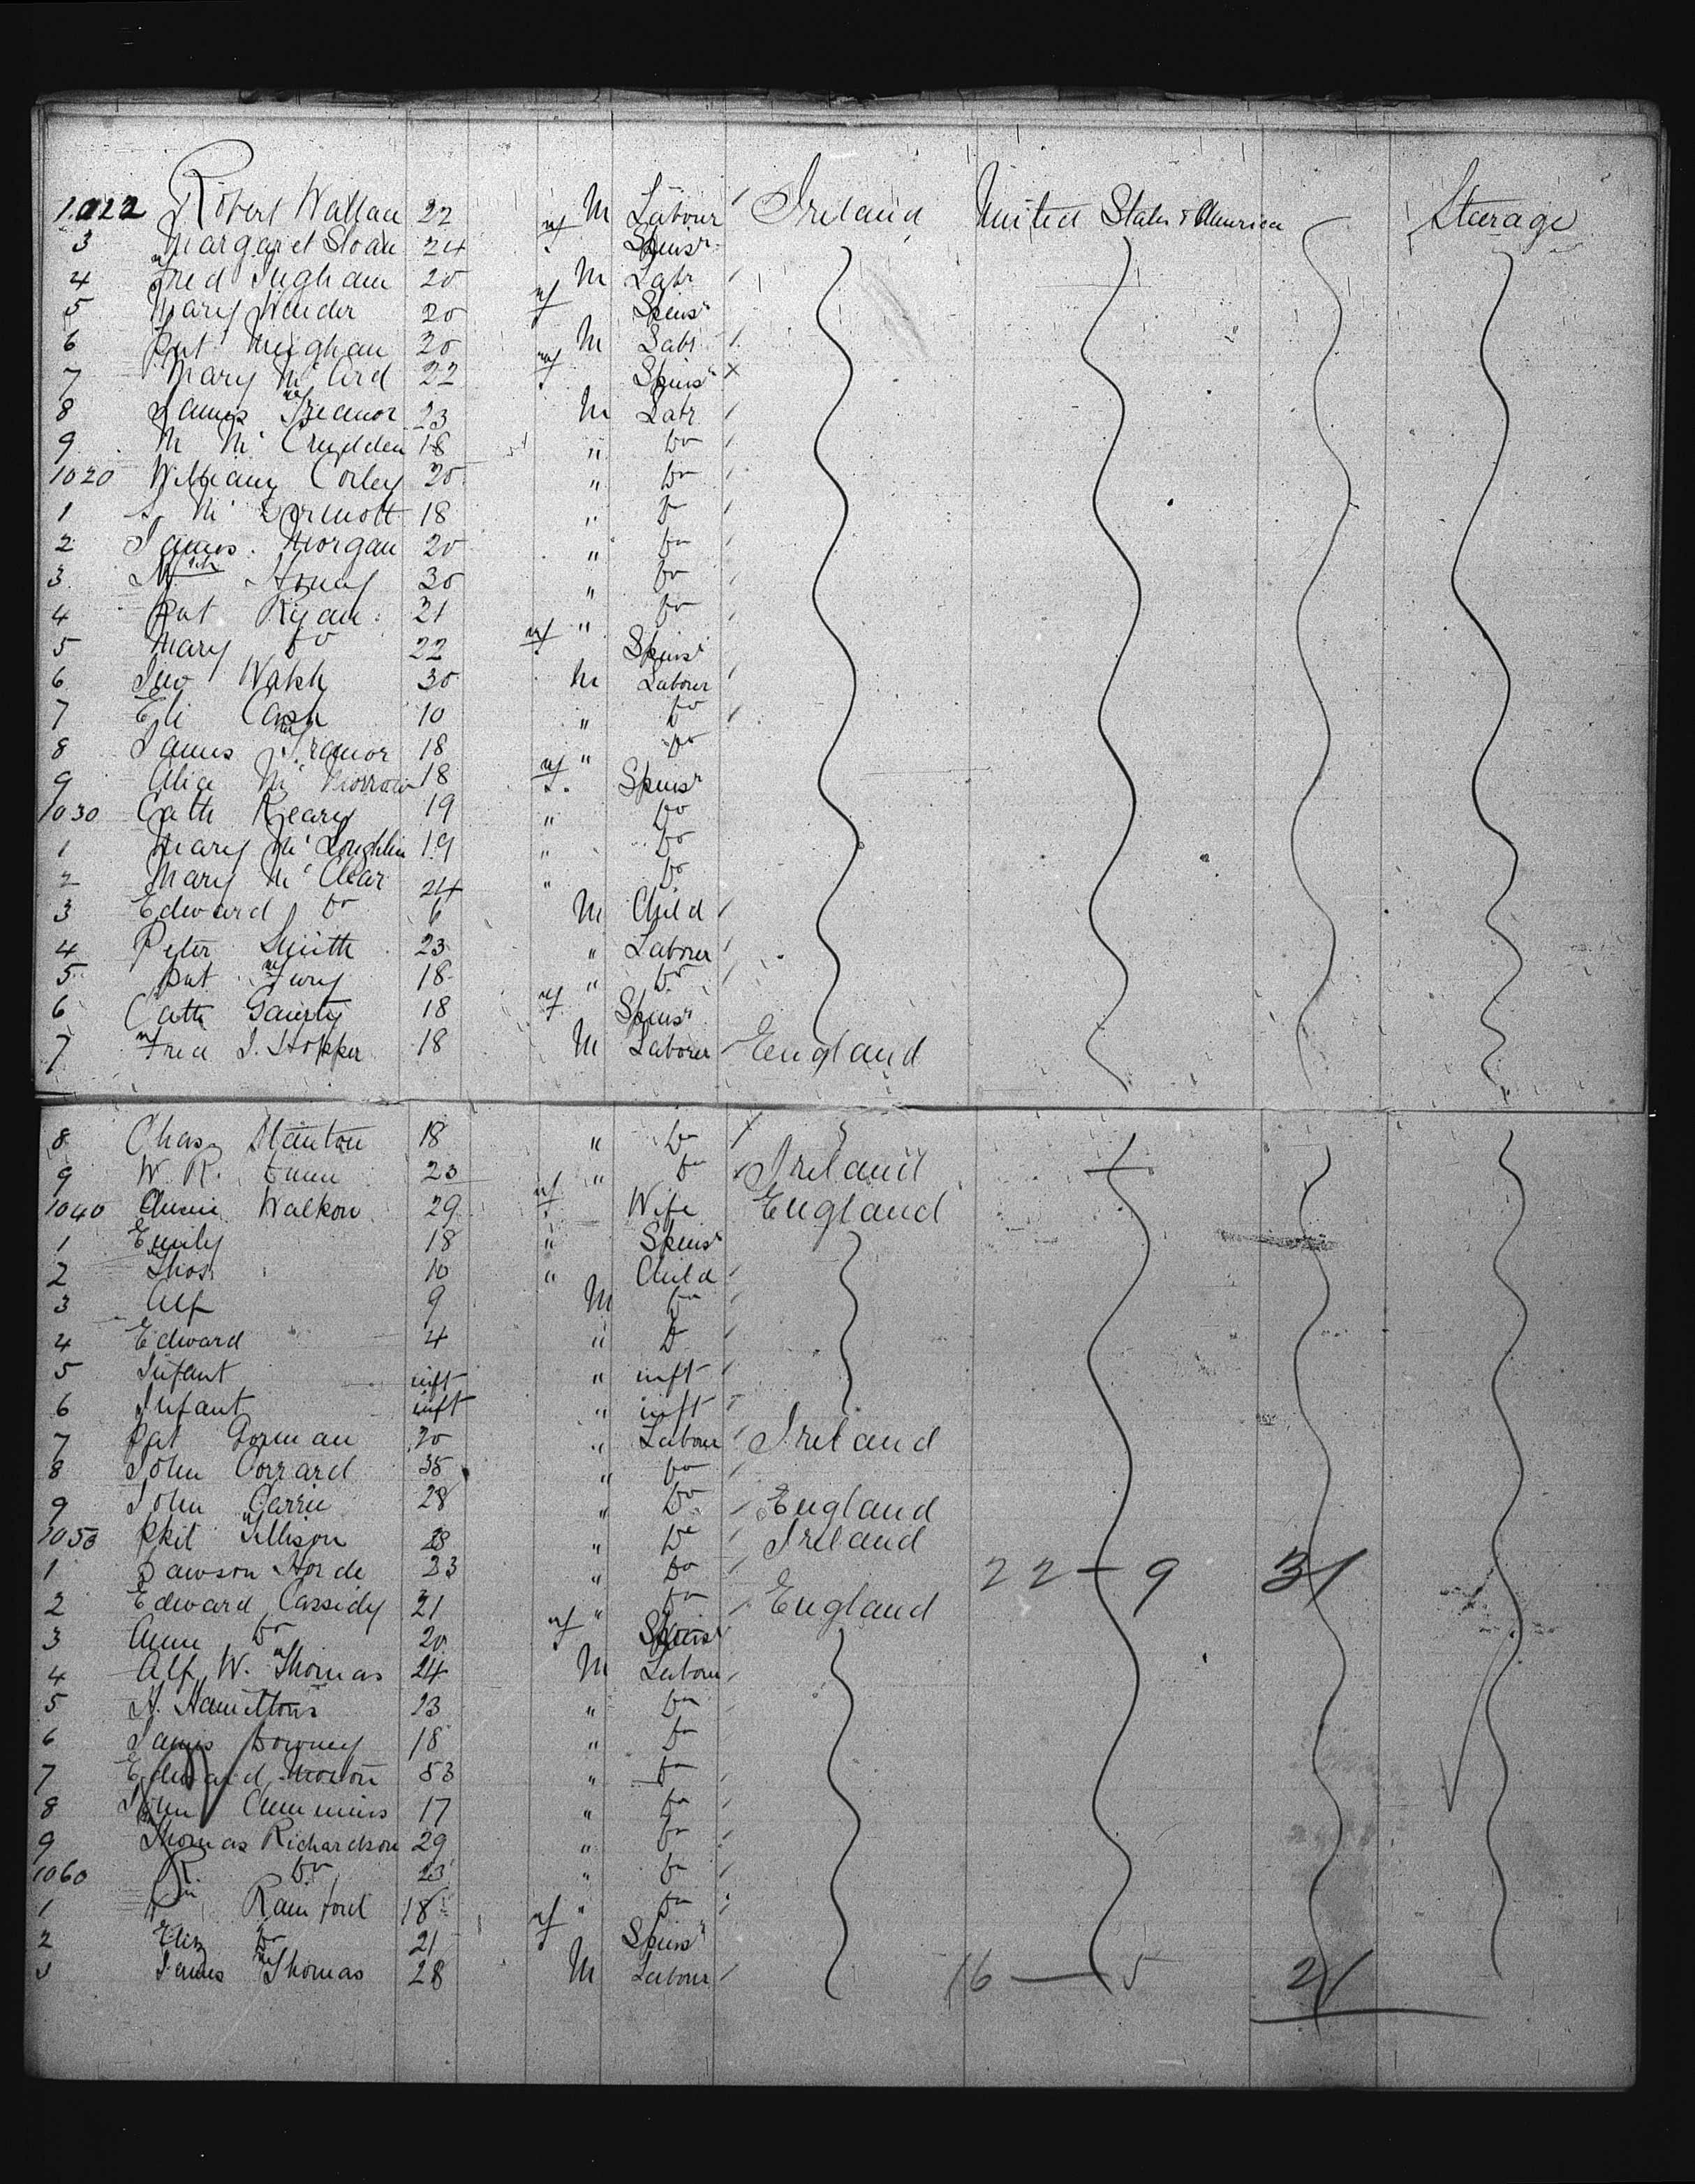 1022 Robert Wallace 22 M Labour Ireland United States of America Steerage
3 Margaret Sloan 24 f Spinsr
4 Fred Ingham 20 M Labr
5 Mary Winder 20 f Spinsr
6 Pat Meighan 20 M Labr
7 Mary McArd 22 f Spinsr x
8 James Treanor 23 M Labr
9 M McCrudden 18 " Do
1020 William Corley 20 " Do
1 McDermott 18 " Do
2 James Morgan 20 " Do
3 30 " Do
4 Pat Ryan 21 " Do
5 Mary Do 22 f Spinsr
6 Jno Walsh 30 M Labour
7 Eli Cash 10 " Do
8 James Treanor 18 " Do
9 Alice McMorrow 18 f Spinsr
1030 Cath Keary 19 " Do
1 Mary McLoughlin 19 " Do
2 Mary McClear 24 " Do
3 Edward Do 6 M Child
4 Peter Smith 23 " Laborer
5 Pat Fury 18 " Do
6 Cath Gairty 18 f Spinsr
7 Fred J. Hopper 18 M Laborer England
8 Chas Stanton 18 " Do
9 W. R. Dunn 23 " Do Ireland
1040 Annie Walkow 29 f Wife England
1 Emily 18 " Spinsr
2 Thos 10 " Child
3 Alf 9 M Do
4 Edward 4 " Do
5 Infant inft " inft
6 Infant inft " inft
7 Pat Gorman 20 " Labour Ireland
8 John Corrard 35 " Do
9 John Carrie 28 " Do England
1050 Ellison 28 " Do Ireland
1 Dawson Horde 23 " Do 22 — 9 31
2 Edward Cassidy 21 " Do England
3 Anne Do 20 f Spinsr
4 Alf W. Thomas 24 M Labour
5 H. Hamiltons 23 " Do
6 James Downey 18 " Do
7 Edward Moston 53 " Do
8 John Cummins 17 " Do
9 Thomas Richardson 29 " Do
1060 R. Do 23 " Do
1 Rainford 18 " Do
2 Eliz Do 21 f Spinsr
3 James Thomas 28 M Labour 16 — 5 21